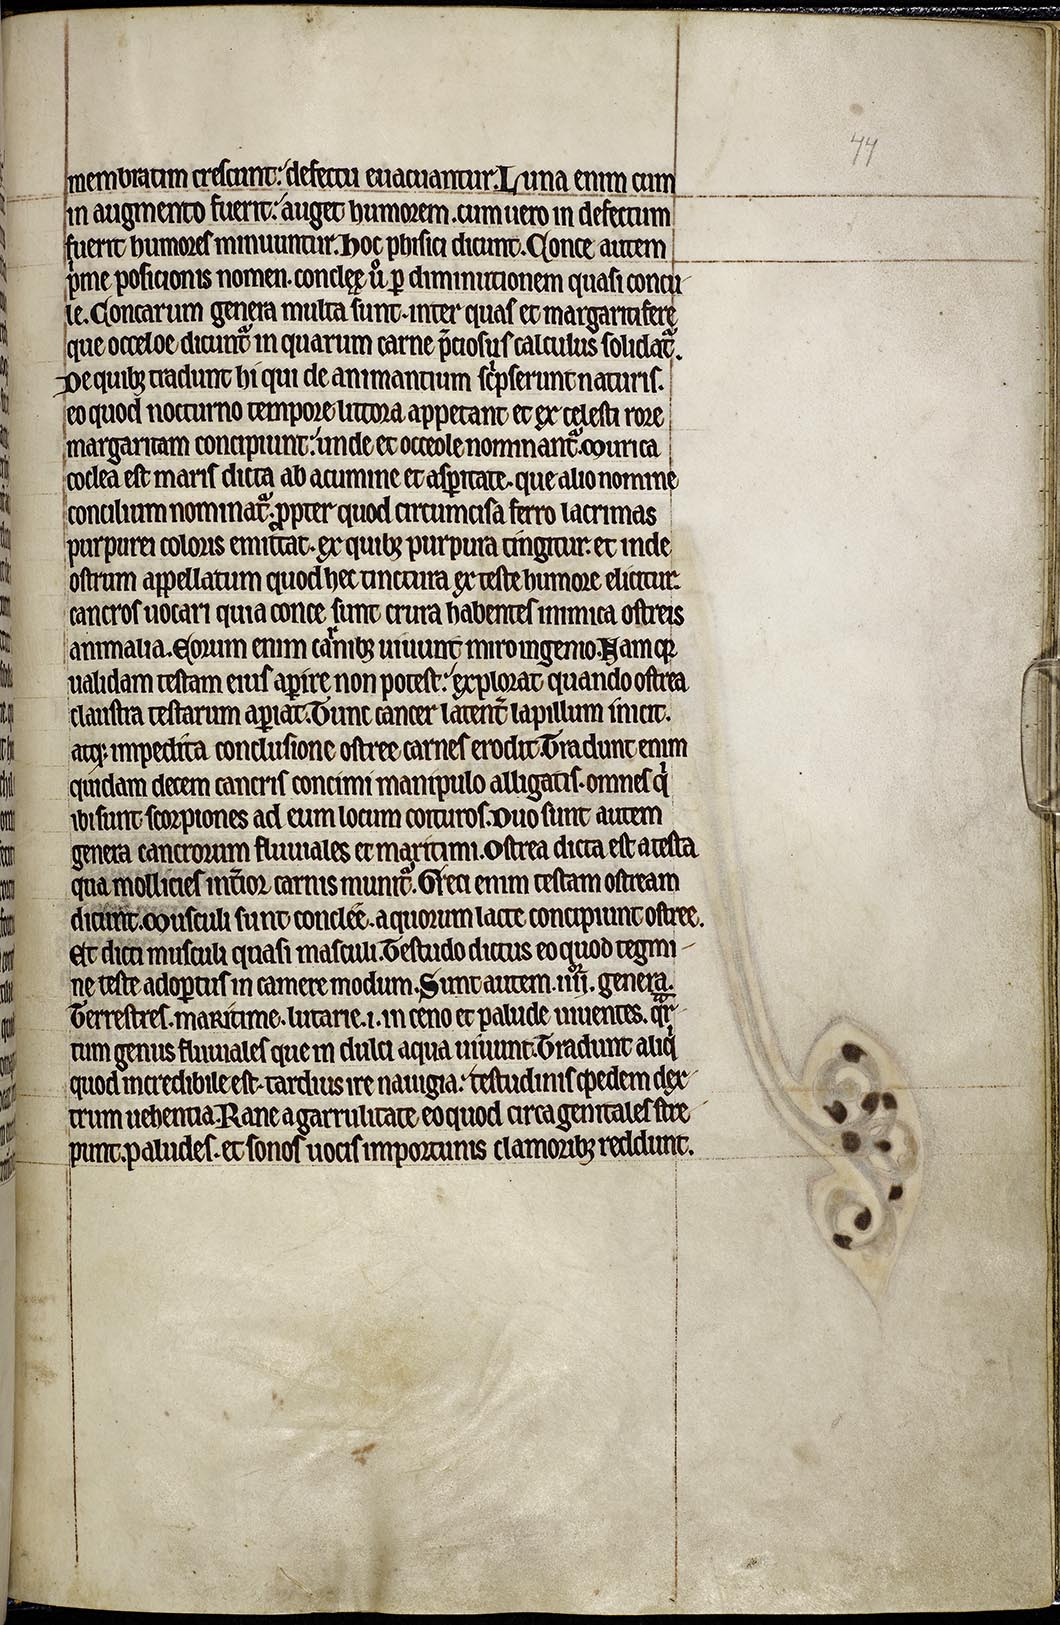 44
membratim crescunt: defectu euacuantur. Luna enim cum
in augmento fuerit: auget humorem. cum uero in defectum
fuerit humores minuuntur. hoc phisici dicunt. Conce autem
p̍me posicionis nomen. conclęę ů ꝑ diminutionem quasi concu
le. Concarum genera multa sunt. inter quas et margaritiferę
que occeloe dicunt᷑ in quarum carne p̄ciosus calculus solidat᷑.
De quibꝫ tradunt hi qui de animantium sc̍pserunt naturis.
eo quod nocturno tempore littora appetant et ex cęlesti rore
margaritam concipiunt: unde et occeole nominant᷑. Murica
coclea est maris dicta ab acumine et asꝑitate. que alio nomine
concilium nominat᷑. ꝓpter quod circumcisa ferro lacrimas
purpurei coloris emittat. ex quibꝫ purpura tingitur. et inde
ostrum appellatum quod hec tinctura ex teste humore elicitur.
cancros uocari quia conce sunt crura habentes inimica ostreis
animalia. Eorum enim carnibꝫ uiuunt miro ingenio. Nam qꝛ
ualidam testam eius aꝑire non potest: explorat quando ostrea
claustra testarum aꝑiat. Tunc cancer latent᷑ lapillum inicit.
atqꝫ impedita conclusione ostree carnes erodit. Tradunt enim
quidam decem cancris concimi manipulo alligatis. omnes q̍
ibi sunt scorpiones ad eum locum coituros. Duo sunt autem
genera cancrorum fluuiales et maritimi. Ostrea dicta est a testa
qua mollicies int᷑ior carnis munit᷑. Greci enim testam ostream
dicunt. Musculi sunt conclee. a quorum lacte concipiunt ostree.
Et dicti musculi quasi masculi. Testudo dictus eo quod tegmi
ne teste adoꝑtus in camere modum. Sunt autem .iiiiᵒʳ. genera.
Terrestres. maritime. lutarie .i. in ceno et palude uiuentes. qᵃr
tum genus fluuiales que in dulci aqua uiuunt. Tradunt aliq̍
quod incredibile est. tardius ire nauigia: testudinis pedem dex
trum uehentia. Rane a garrulitate eo quod circa genitales stre
punt. paludes. et sonos uocis importunis clamoribꝫ reddunt.